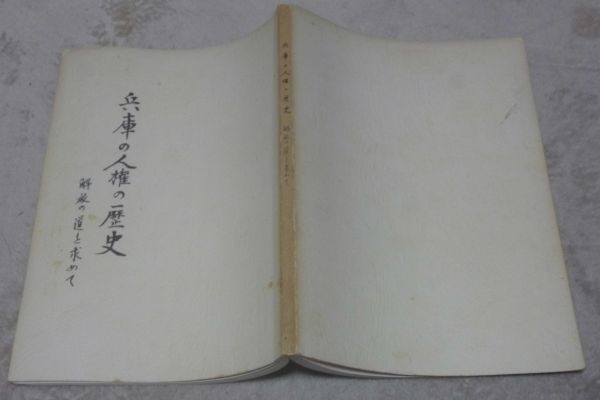 兵庫の人権の歴史
解放の道を求めて
兵庫の人権の歴史 解放の道を求めて